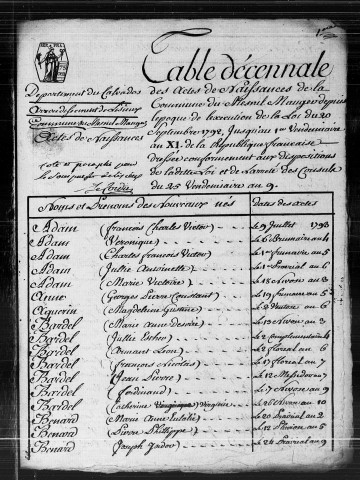 Table décennale
Departement du Calvados
Arrondissement de Lisieux
Commune du Mesnil Mauger
Actes de Naissances
des Actes de Naissances de la
Commune du Mesnil Mauger depuis
l'époque de l'execution de la Loi du 20
Septembre 1792, Jusqu'au 1er Vendemiaire
an XI. de la République francaise
dressée conformement aux dispositions
de ladite Loi et de l'arreté des Consuls
du 25 Vendemiaire an 9.
Noms et Prenoms des Nouveaux nés
Dates des actes
Adam (François Charles Victor) Le 9 Juillet 1793
Adam (Veronique) Le 6 Brumaire an 4
Adam (Charles francois Victor) Le 1er frimaire an 5
Adam (Julie Antoinette) Le 1er Prairial an 6
Adam (Marie Victoire) Le 18 Nivose an 3
(Georges Pierre Constant)
(Magdeleine Gustine)
Bardel (Marie Anne desirée) Le 15 Nivose an 3
Bardel (Julie Esther) Le 2 Complementaire 4
Bardel (Armand Leon) Le 2 floreal an 6
Bardel (francois Nicolas) Le 17 floreal an 7
Bardel (Jean Pierre) Le 12 Messidor an 7
Bardel (Ferdinand) Le 7 Nivose an 9
Bardel (Catherine Virginie) Le 26 Nivose an 10
Benard (Marie Anne Eulalie) Le 20 Prairial an 2
Benard (Pierre Philippe) an 5
Benard (Joseph Isidor) Le 24 Prairial an 9